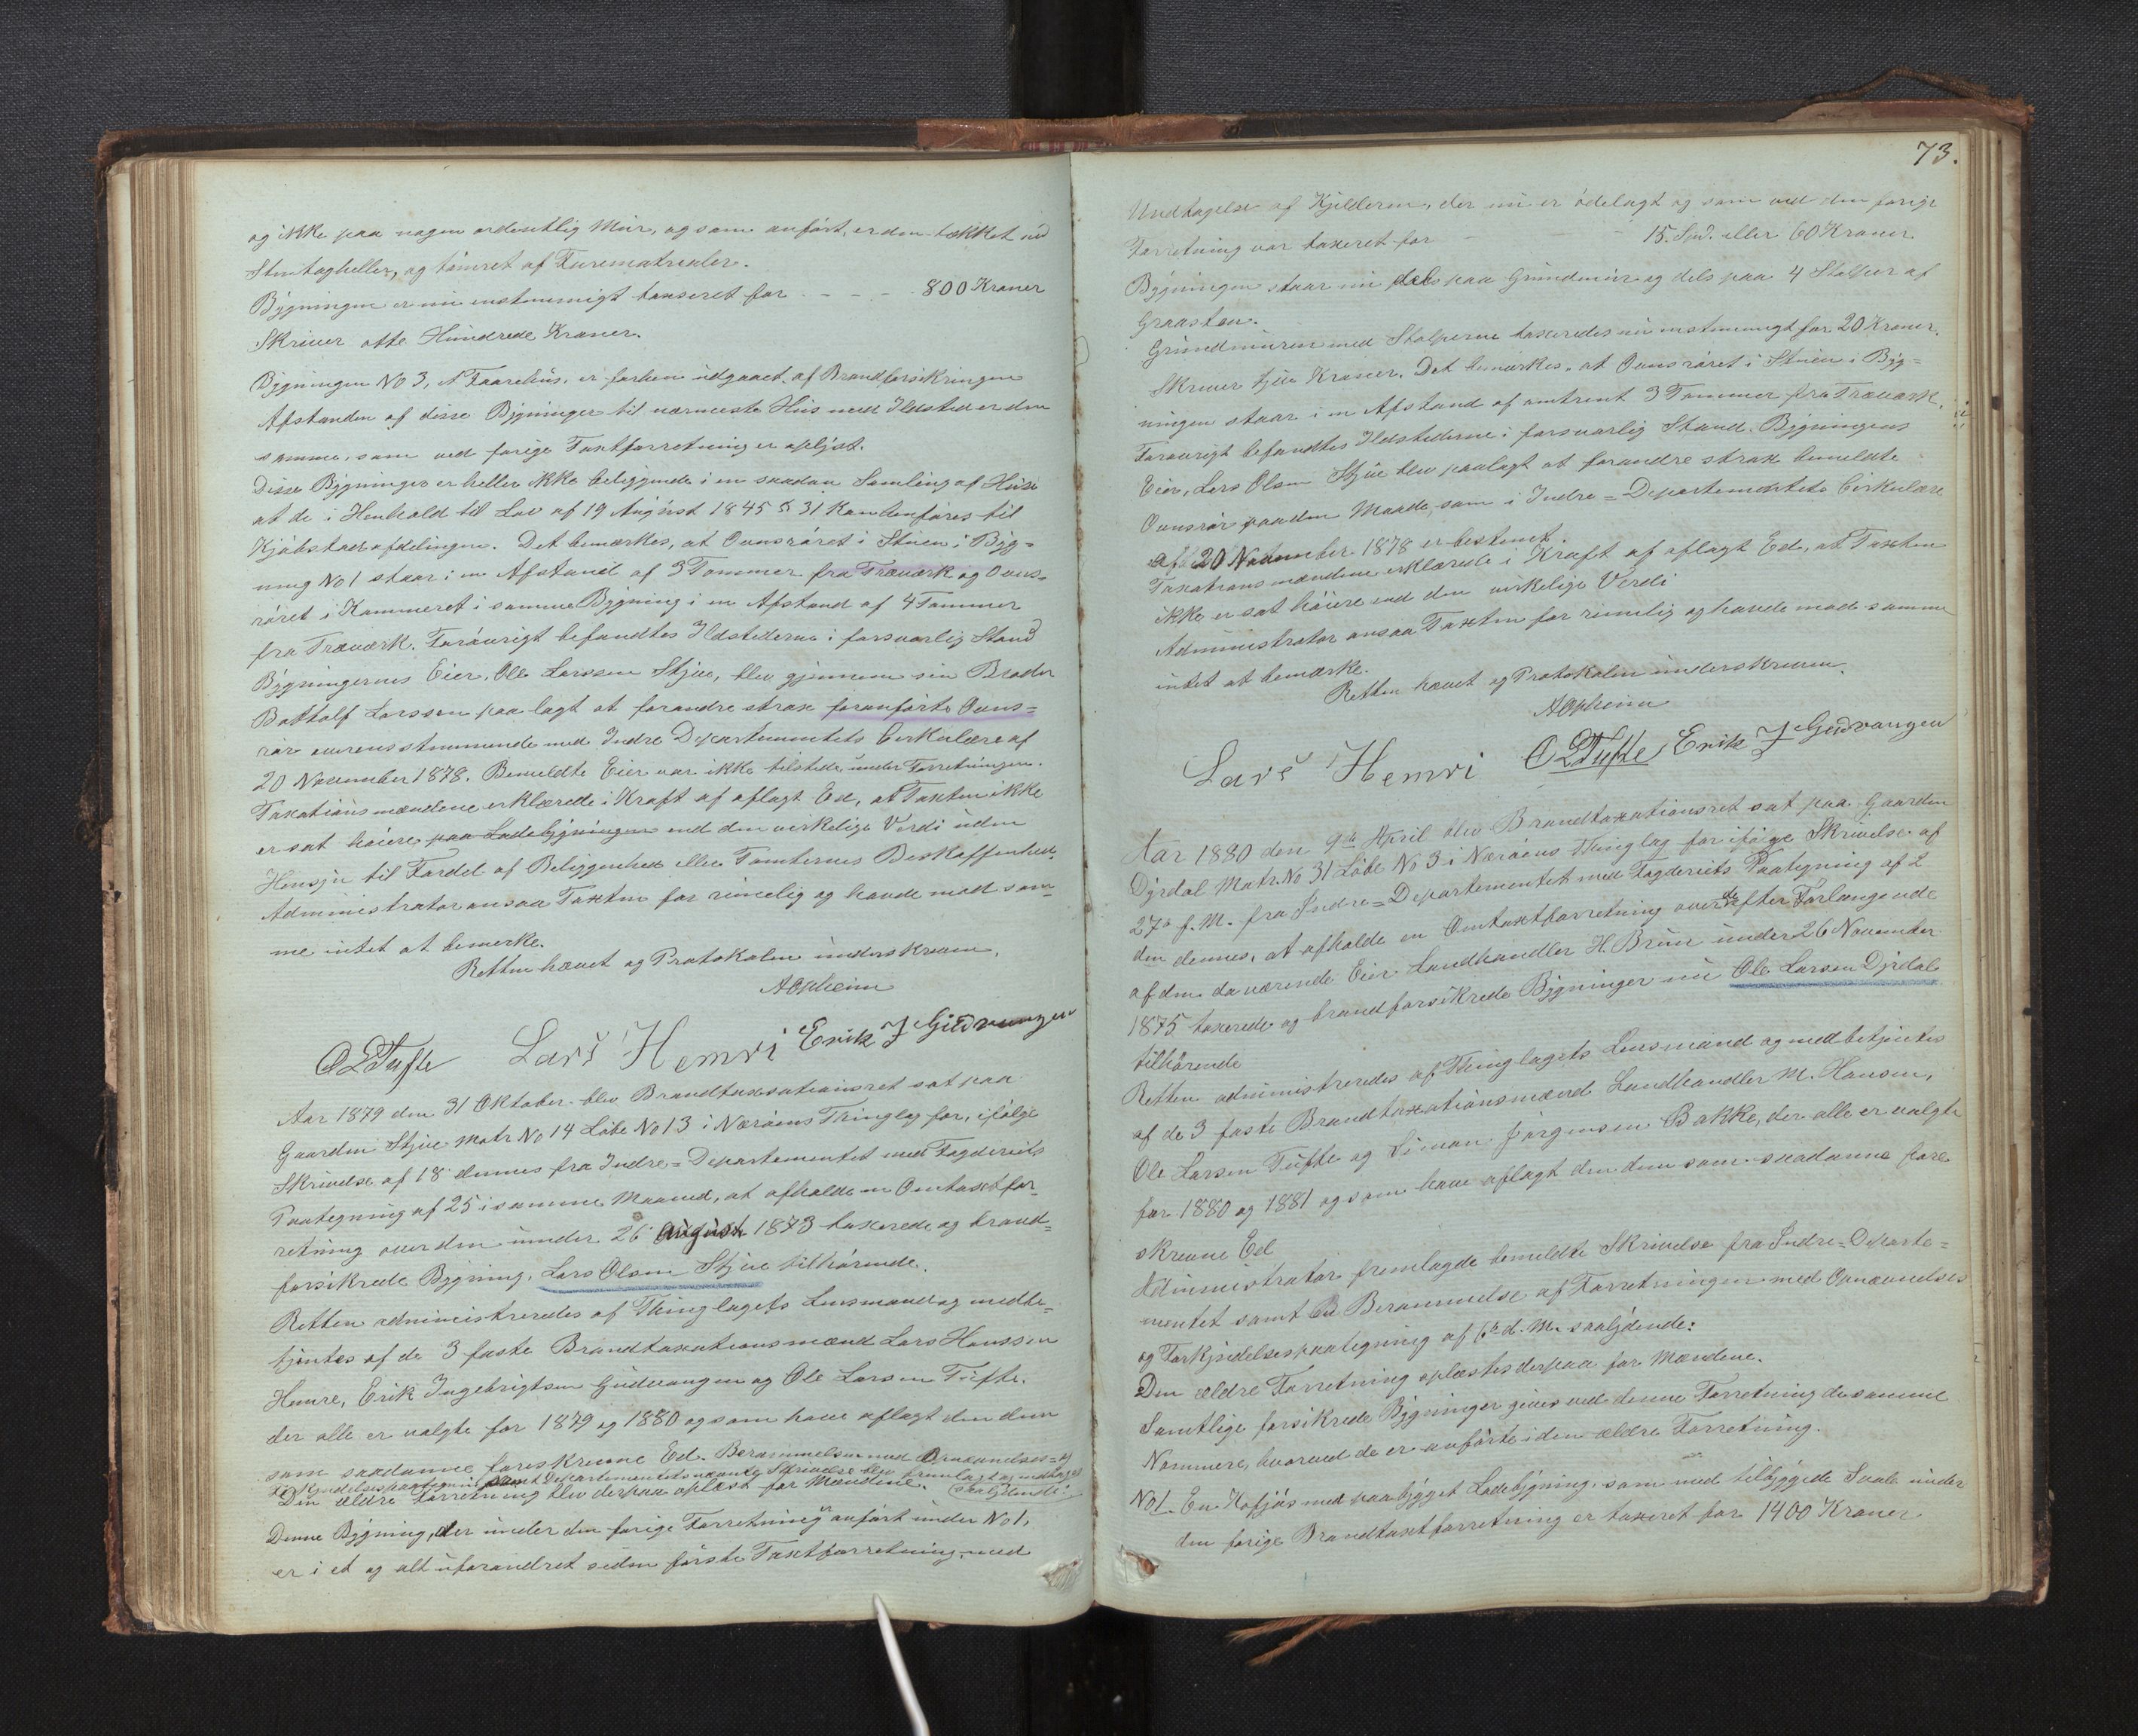 og ikke paa nogen ordentlig Mur, og som anført, er den tækket med
Stentagheller, og tømret af Furematrealer.
Bygningen er nu enstemmigt taxseret for - - - 800 Kroner
Skriver otte Hundrede Kroner.
Bygningen No 3, et Faarehus, er forhen udgaaet af Brandforsikringen
Afstanden af disse Bygninger til nærmeste Hus med Ildsted er den
samme, som ved forige Taxtforretning er oplyst.
Disse Bygninger er heller ikke beliggende i en saadan Samling af Huse
at de i Henhold til Lov af 19 August 1845 § 31 kan henføres til
Kjøbstadafdelingen. Det bemærkes, at Ovnsrøret i Stuen i Byg=
ning No 1 staar i en Afstand af 3 Tommer fra Træværk og Ovns=
røret i Kammeret i samme Bygning i en Afstand af 4 Tommer
fra Træværk. Forøvrigt befandtes Ildstederne i forsvarlig Stand
Bygningernes Eier, Ole Larssen Stjve, blev gjennem sin Broder
Bottolf Larssen paalagt at forandre strax foranførte Ovns=
rør overensstemmende med Indre Departementets Cirkulære af
20 November 1878. Bemeldte Eier var ikke tilstede under Forretningen.
Taxationsmændene erklærede i Kraft af aflagt Ed, at Taxten ikke
er sat høiere paa Ladebygningen end den virkelige Verdi uden
Hensyn til Fordel af Beliggenhed eller Tomternes Beskaffenhed.
Administrator ansaa Taxten for rimelig og havde mod sam=
me intet at bemerke.
Retten hævet og Protokolen underskreven.
AOpheim
OLTufte Lars Hemri Erik J Gudvangen
Aar 1879 den 31 Oktober blev Brandtaxsationsret sat paa
Gaarden Stjve Matr No 14 Løbe No 13 i Nærøens Thinglag for, ifølge
Skrivelse af 18 dennes fra Indre=Departementet med Fogderiets
Paategning af 25 i samme Maaned, at afholde en Omtaxtfor=
retning over den under 26 August 1873 taxerede og brand=
forsikrede Bygning, Lars Olsen Stjve tilhørende.
Retten administreredes af Thinglagets Lensmand og medbe=
tjentes af de 3 faste Brandtaxationsmænd Lars Hanssen
Hemre, Erik Ingebrigtsen Gudvangen og Ole Larsen Tufte.
der alle er valgte for 1879 og 1880 og som have aflagt den dem
som saadanne foreskrevne Ed. Berammelsen med Opnævnelses= og
Forkyndelsespaategning samt Departementets nævnte Skrivelse blev fremlagt og indtages
saalydende:
Den ældre Forretning blev derpaa oplæst for Mændene.
Denne Bygning, der under den forige Forretning er anført under No 1,
er i et og alt uforandret siden første Taxtforretning, med
73.
Undtagelse af Kjelderen, der nu er ødelagt og som ved den forige
Forretning var taxeret for - - - 15 Spd. eller 60 Kroner
Bygningen staar nu dels paa Grundmur og dels paa 4 Stolper af
Graasten.
Grundmuren med Stolperne taxeredes nu enstemmigt for 20 Kroner,
Skriver tjve Kroner. Det bemærkes, at Ovnsrøret i Stuen i Byg=
ningen staar i en Afstand af omtrent 3 Tommer fra Træværk.
Forøvrigt befandtes Ildstederne i forsvarlig Stand. Bygningens
Eier, Lars Olsen Stjve blev paalagt at forandre strax bemeldte
Ovnsrør paa den Maade, som i Indre=Departementets Cirkulære
af 20 November 1878 er bestemt.
Taxationsmændene erklærede i Kraft af aflagt Ed, at Taxten
ikke er sat høiere end den virkelige Verdi
Administrator ansaa Taxten for rimelig og havde mod samme
intet at bemærke.
Retten hævet og Protokolen underskreven.
AOpheim
Lars Hemri OLTufte Erik J Gudvangen
Aar 1880 den 9de April blev Brandtaxationsret sat paa Gaarden
Dyrdal Matr. No 31 Løbe No 3 i Nærøens Thinglag for ifølge Skrivelse af
27de f. M. fra Indre=Departementet med Fogderiets Paategning af 2
den dennes, at afholde en Omtaxtforretning over de efter Forlangende
af den daværende Eier Landhandler H. Brun under 26 November
1875 taxerede og brandforsikrede Bygninger nu Ole Larsen Dyrdal
tilhørende
Retten administreredes af Thinglagets Lensmand og medbetjentes
af de 3 faste Brandtaxationsmænd Landhandler M. Hansen,
Ole Larsen Tufte og Simon Jørgensen Bakke, der alle er valgte
for 1880 og 1881 og som have aflagt den dem som saadanne fore
skrevne Ed
Administrator fremlagde bemeldte Skrivelse fra Indre=Departe=
mentet samt en Berammelse af Forretningen med Opnævnelses
og Forkyndelsespaategning af 6te d. M. saalydende:
Den ældre Forretning oplæstes derpaa for Mændene.
Samtlige forsikrede Bygninger gives ved denne Forretning de samme
Nommere, hvorved de er anførte i den ældre Forretning.
No 1. En Kofjøs med paabygget Ladebygning, som med tilbyggede Svale under
den forige Brandtaxtforretning er taxeret for 1400 Kroner